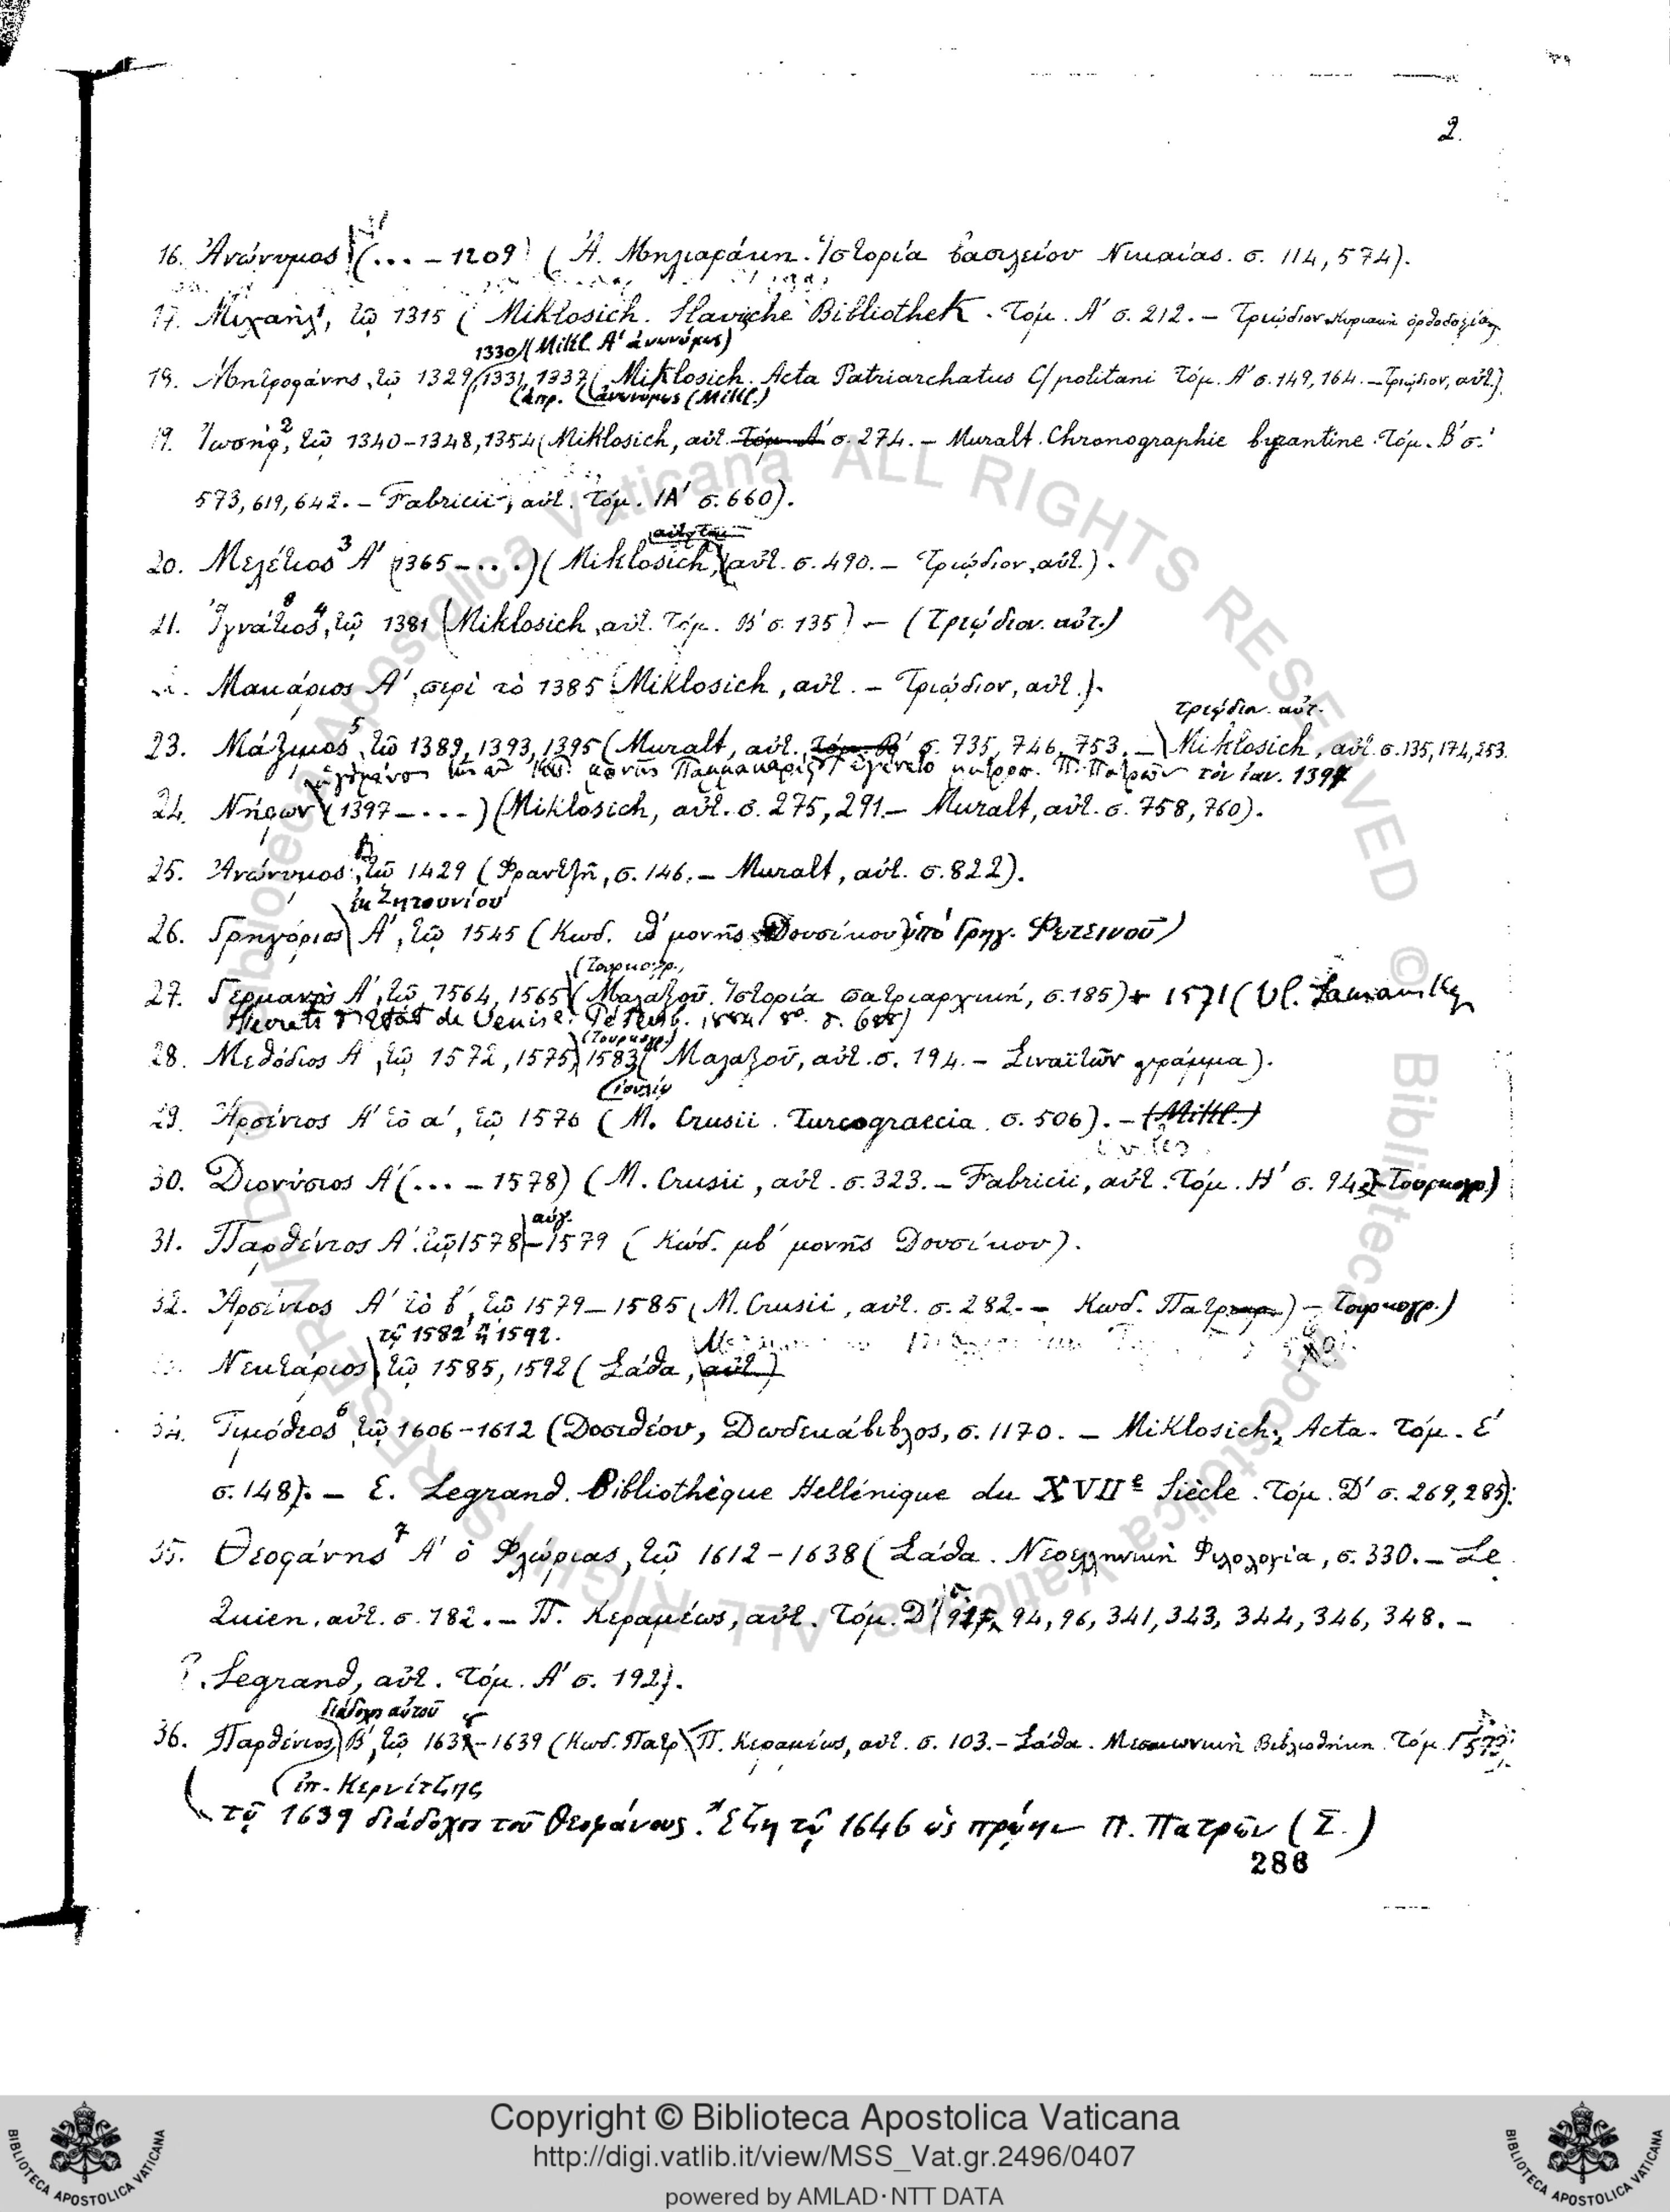 2.
16. Ἀνώνυμος (... – 1209) (Ἀ. Μηλιαράκη. Ἱστορία βασιλείου Νικαίας. σ. 114, 574).
17. Μιχαήλ, τῷ 1315 (Miklosich. Slaviche Bibliothek. Τόμ. Α' σ. 212. – Τριῴδιον Κυριακὴ ὀρθοδοξίας
1330 (Mikl. Α' ἀνωνύμως)
18. Μητροφάνης, τῷ 1329, 1331, 1337 (Miklosich. Acta Patriarchatus C/politani Τόμ. Α' σ. 149, 164. – Τριῴδιον, αὐτ.).
(ἀπρ. (ἀνωνύμως (Mikl.)
19. Ἰωσήφ,² τῷ 1340–1348, 1354 (Miklosich, αὐτ. Τόμ. Α' σ. 274. – Muralt. Chronographie byzantine. Τόμ. Β' σ.
573, 619, 642. – Fabricii, αὐτ. Τόμ. ΙΑ' σ. 660).
20. Μελέτιος³ Α' (1365 – ...) (Miklosich, αὐτ. σ. 490. – Τριῴδιον, αὐτ.).
21. Ἰγνάτιος⁴, τῷ 1381 (Miklosich, αὐτ. Τόμ. Β' σ. 135) – (Τριῴδιον. αὐτ.)
Μακάριος Α', περὶ τὸ 1385 (Miklosich, αὐτ. – Τριῴδιον, αὐτ.).
τριῴδιον. αὐτ.
23. Μάξιμος⁵, τῷ 1389, 1393, 1395 (Muralt, αὐτ. Τόμ. Β' σ. 735, 746, 753. – Miklosich, αὐτ. σ. 135, 174, 253.
ἐγένετο μητροπ. Π. Πατρῶν τὸν ἰαν. 1397
24. Νήφων (1397 – ...) (Miklosich, αὐτ. σ. 275, 291. – Muralt, αὐτ. σ. 758, 760).
25. Ἀνώνυμος, τῷ 1429 (Φραντζῆ, σ. 146. – Muralt, αὐτ. σ. 822).
ἐκ Ζητουνίου
26. Γρηγόριος Α', τῷ 1545 (Κωδ. ιθ' μονῆς Δουσίκου) ὑπὸ Γρηγ. Φωτεινοῦ)
(Τουρκογρ.,
27. Γερμανὸς Α', τῷ 1564, 1565 (Μαλαξοῦ. Ἱστορία πατριαρχική, σ. 185) + 1571 (Vl. Lamansky
Secrets d'état de Venise. Petersb. 1884 8º.
(Τουρκογρ.)
28. Μεθόδιος Α', τῷ 1572, 1575, 1583 (Μαλαξοῦ, αὐτ. σ. 194. – Σιναϊτῶν γράμμα).
(ἰουλίῳ
29. Ἀρσένιος Α' τὸ α', τῷ 1576 (M. Crusii. Turcograecia. σ. 506). – (Mikl.)
30. Διονύσιος Α' (... – 1578) (M. Crusii, αὐτ. σ. 323. – Fabricii, αὐτ. Τόμ. Η' σ. 942 – Τουρκογρ.)
αὐγ.
31. Παρθένιος Α', τῷ 1578 – 1579 (Κώδ. μβ' μονῆς Δουσίκου).
32. Ἀρσένιος Α' τὸ β', τῷ 1579 – 1585 (M. Crusii, αὐτ. σ. 282. – Κωδ. Πατρ.) – Τουρκογρ.)
τῷ 1582 ἢ 1592.
Νεκτάριος, τῷ 1585, 1592 (Σάθα, αὐτ.)
34. Τιμόθεος⁶ τῷ 1606–1612 (Δοσιθέου, Δωδεκάβιβλος, σ. 1170. – Miklosich, Acta. Τόμ. Ε'
σ. 148). – E. Legrand. Bibliothèque Hellénique du XVIIe Siècle. Τόμ. Δ' σ. 269, 285).
35. Θεοφάνης⁷ Α' ὁ Φλώριας, τῷ 1612 – 1638 (Σάθα. Νεοελληνικὴ Φιλολογία, σ. 330. – Le
Quien, αὐτ. σ. 182. – Π. Κεραμέως, αὐτ. Τόμ. Δ' 94, 96, 341, 343, 344, 346, 348. –
Legrand, αὐτ. Τόμ. Α' σ. 192).
διάδοχος αὐτοῦ
36. Παρθένιος Β', τῷ 1638 – 1639 (Κωδ. Πατρ. Π. Κεραμέως, αὐτ. σ. 103. – Σάθα. Μεσαιωνικὴ Βιβλιοθήκη. Τόμ. Γ'
(ἐπ. Κερνίτζης
τῷ 1639 διάδοχος τοῦ Θεοφάνους. Ἔζη τῷ 1646 ὡς πρώην Π. Πατρῶν (Σ.)
286
Copyright © Biblioteca Apostolica Vaticana
http://digi.vatlib.it/view/MSS_Vat.gr.2496/0407
powered by AMLAD·NTT DATA
BIBLIOTECA APOSTOLICA VATICANA
BIBLIOTECA APOSTOLICA VATICANA